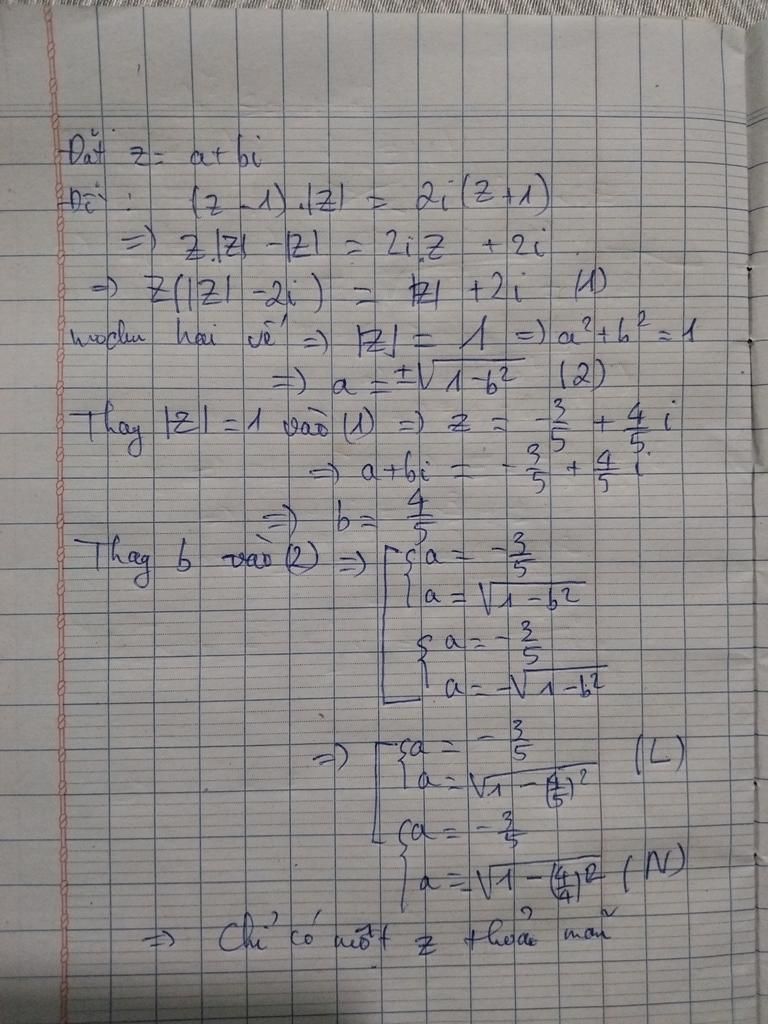 Đặt z = a+bi
Đề: (z-1).|z| = 2i(z+1)
=> z.|z| - |z| = 2i.z + 2i
=> z(|z| - 2i) = |z| + 2i (1)
modun hai vế => |z| = 1 => a² + b² = 1
=> a = ±√(1-b²) (2)
Thay |z| = 1 vào (1) => z = -3/5 + 4/5 i
=> a+bi = -3/5 + 4/5 i
=> b = 4/5
Thay b vào (2) => [ { a = -3/5
a = √(1-b²)
{ a = -3/5
a = -√(1-b²)
=> [ { a = -3/5 (L)
a = √(1-(4/5)²)
{ a = -3/5
a = -√(1-(4/4)²) (N)
=> Chỉ có một z thoả mãn